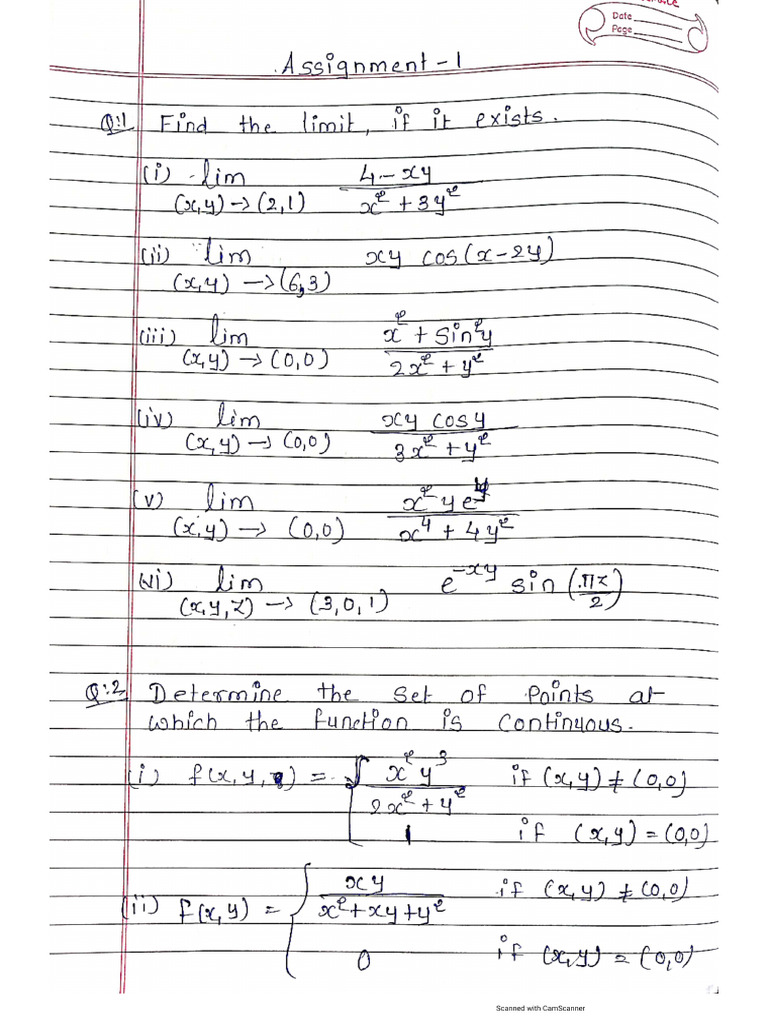 Date
Page
Assignment - 1
Q:1 Find the limit, if it exists.
(i) lim (x,y) → (2,1) 4 - xy / x² + 3y²
(ii) lim (x,y) → (6,3) xy cos(x-2y)
(iii) lim (x,y) → (0,0) x² + sin²y / 2x² + y²
(iv) lim (x,y) → (0,0) xy cosy / 3x² + y²
(v) lim (x,y) → (0,0) x² y e^y / x⁴ + 4y²
(vi) lim (x,y,z) → (3,0,1) e^-xy sin (πz/2)
Q:2 Determine the set of points at
which the function is continuous.
(i) f(x,y) = { x² y³ / 2x² + y² if (x,y) ≠ (0,0)
1 if (x,y) = (0,0)
(ii) f(x,y) = { xy / x² + xy + y² if (x,y) ≠ (0,0)
0 if (x,y) = (0,0)
Scanned with CamScanner